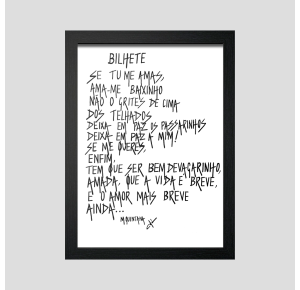 BILHETE
SE TU ME AMAS,
AMA-ME BAIXINHO
NÃO O GRITES DE CIMA
DOS TELHADOS
DEIXA EM PAZ OS PASSARINHOS
DEIXA EM PAZ A MIM!
SE ME QUERES,
ENFIM,
TEM QUE SER BEM DEVAGARINHO,
AMADA, QUE A VIDA É BREVE,
E O AMOR MAIS BREVE
AINDA...
M.QUINTANA